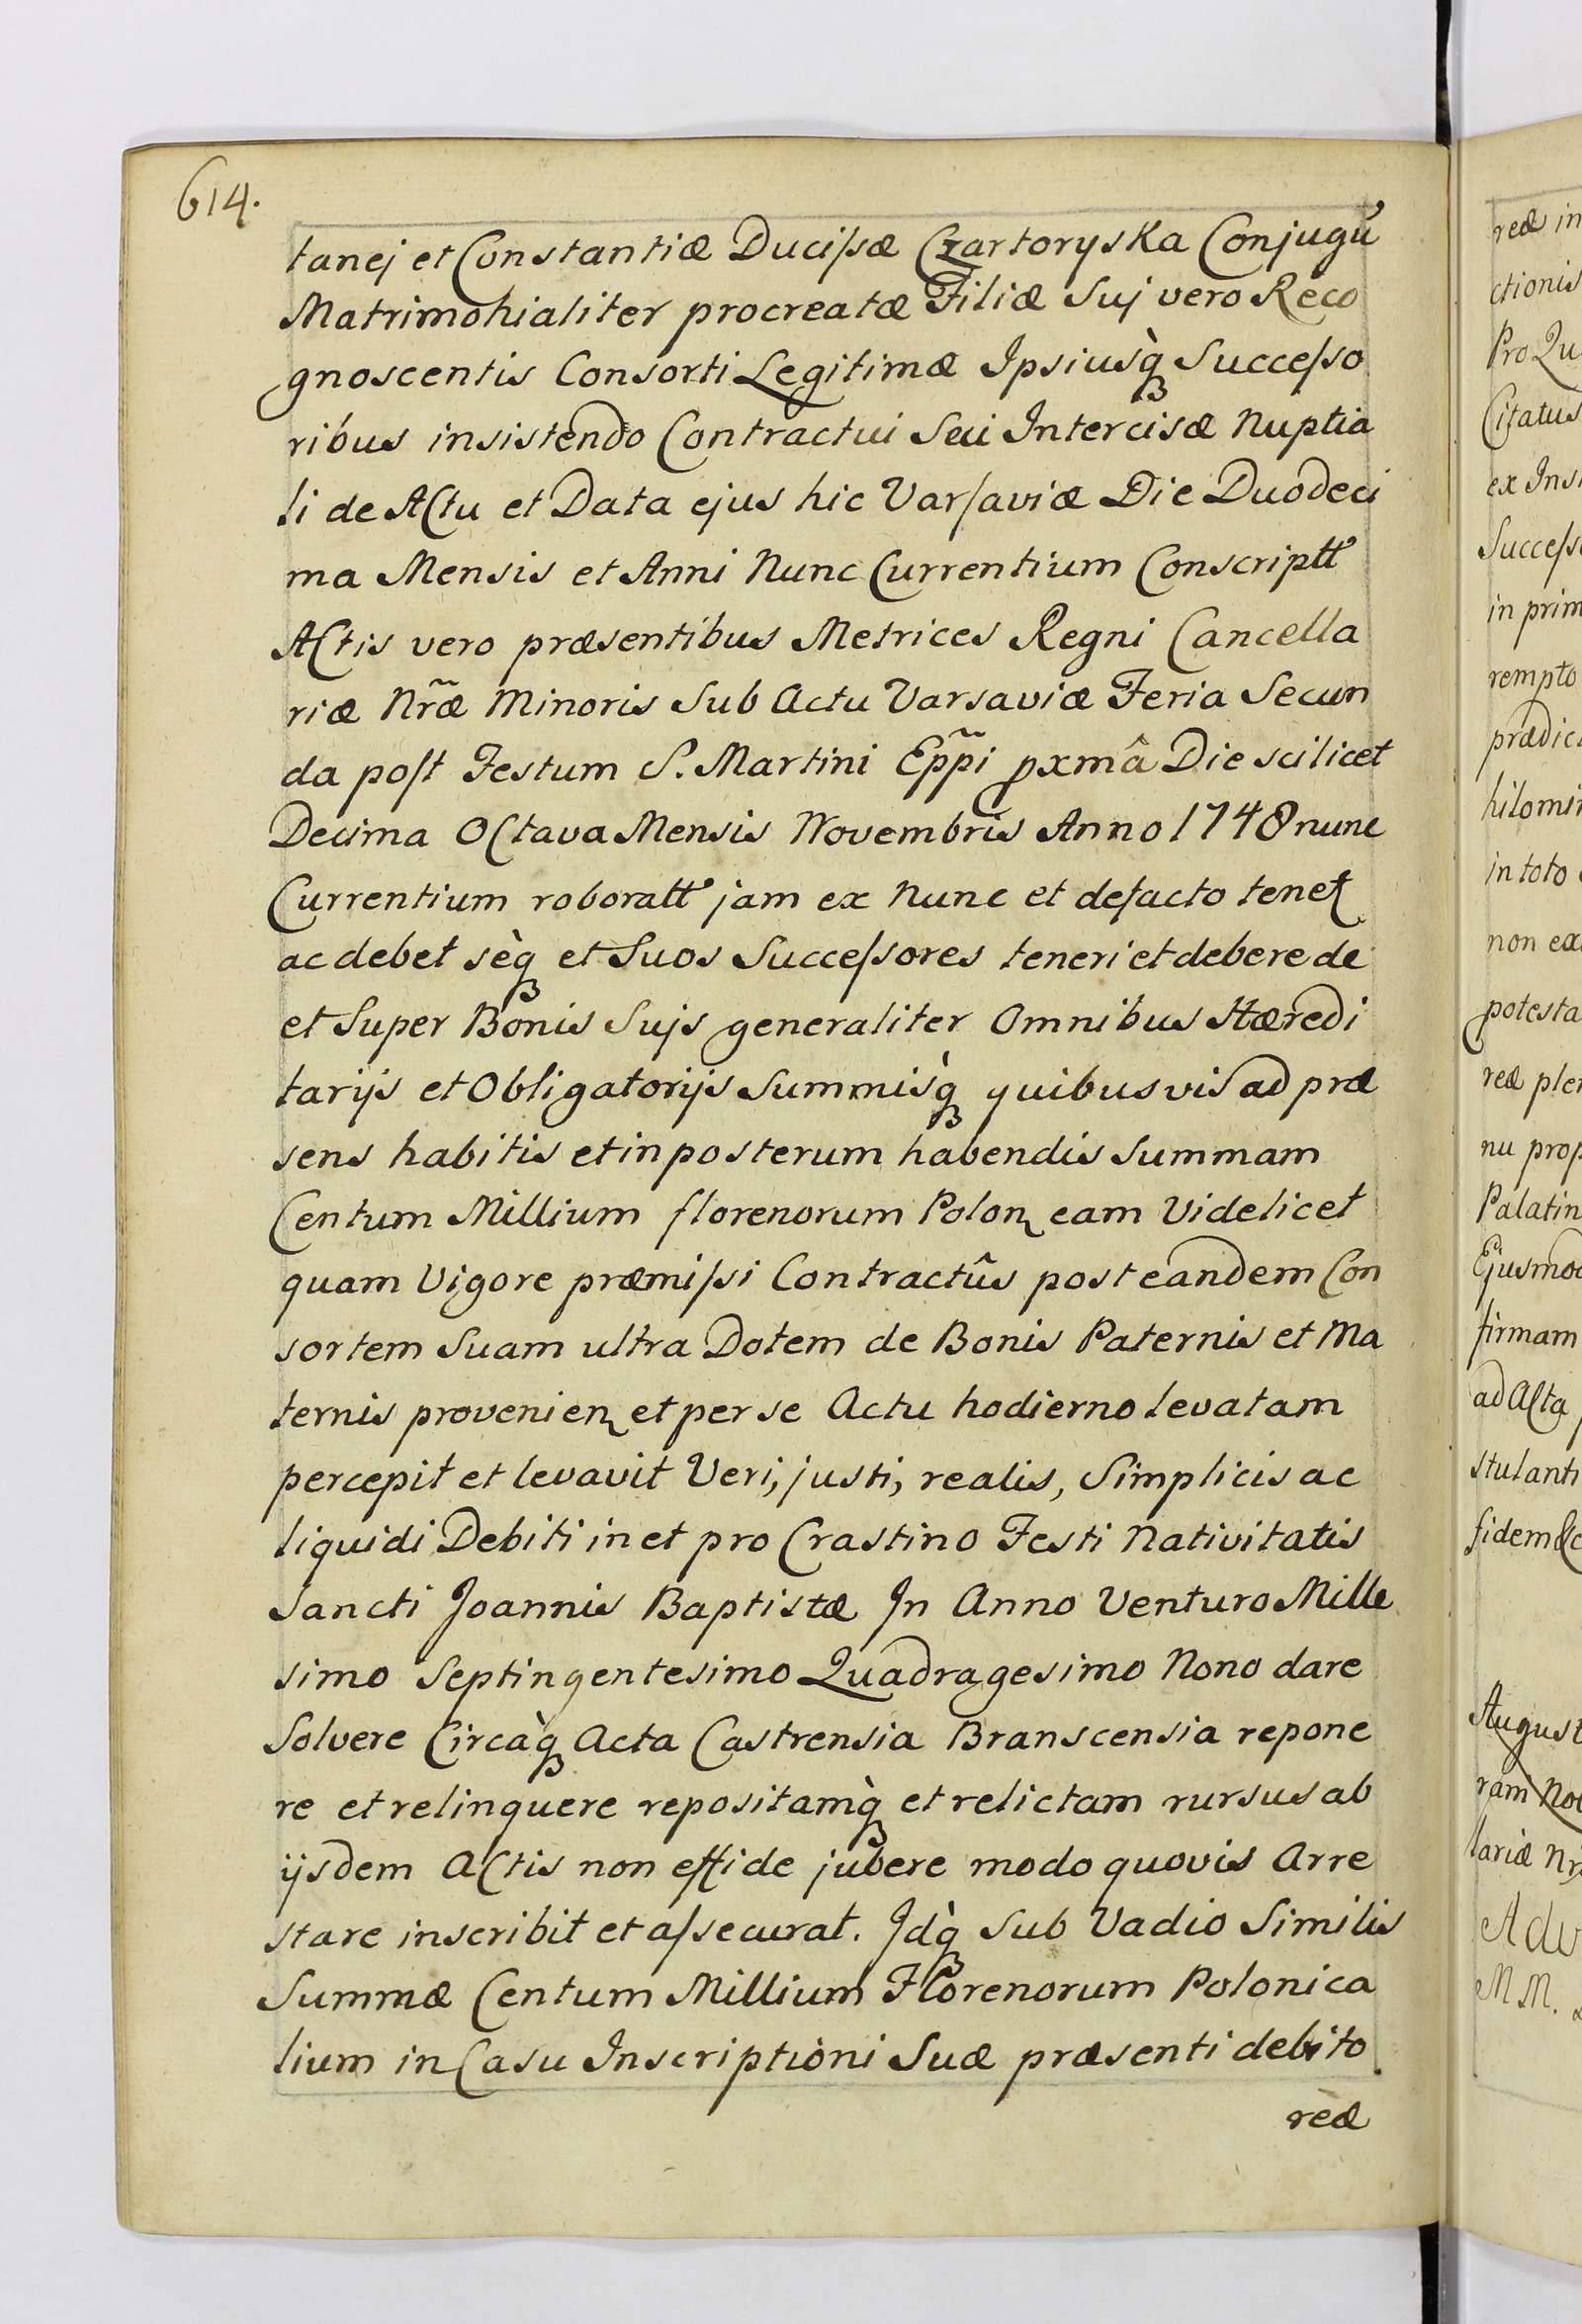 614.
tanej et Constantiæ Ducißæ Czartoryska Conjugũ
Matrimonialiter procreatæ Filiæ Suj vero Reco
gnoscentis Consorti Legitimæ Ipsiusq̀ꝫ Succeſso
ribus insistendo Contractui Seu Intercisæ Nuptia
li de Actu et Data ejus hic Varſaviæ Die Duodeci
ma Mensis et Anni Nunc Currentium Conscriptt
Actis vero præsentibus Metrices Regni Cancella
riæ Nr̃æ Minoris Sub Actu Varsaviæ Feria Secun
da poſt Festum S. Martini Epp̃i pxmâ Die scilicet
Decima Octava Mensis Novembris Anno 1748 nunc
Currentium roboratt jam ex Nunc et defacto tenet
ac debet sèqꝫ et Suos Succeſsores teneri et debere de
et Super Bonis Sujs generaliter Omnibus Hæredi
tarijs et Obligatorijs Summisq̀ꝫ quibusvis ad præ
sens habitis et in posterum habendis Summam
Centum Millium florenorum Polon eam Videlicet
quam Vigore præmiſsi Contractûs post eandem Con
sortem Suam ultra Dotem de Bonis Paternis et Ma
ternis provenien et per se Actu hodierno levatam
percepit et levavit Veri, justi, realis, Simplicis ac
liquidi Debiti in et pro Crastino Festi Nativitatis
Sancti Joannis Baptistæ In Anno Venturo Mille
simo Septingentesimo Quadragesimo Nono dare
Solvere Circàqꝫ Acta Castrensia Branscensia repone
re et relinquere repositamq̀ꝫ et relictam rursus ab
ijsdem Actis non effide jubere modo quovis Arre
stare inscribit et aſsecurat. Idq̀ꝫ Sub Vadio Similis
Summæ Centum Millium Florenorum Polonica
lium in Casu Inscriptioni Suæ præsenti debito
reæ
reæ in
ctionis
Pro Qu
Citatus
ex Ins
Succeſs
in prim
rempto
prædic
hilomi
in toto
non ex
potesta
reæ ple
nu prop
Palatin
Ejusmod
firmam
ad Acta
stulant
fidem &c
August
ram No
lariæ Nr
Adv
M M.